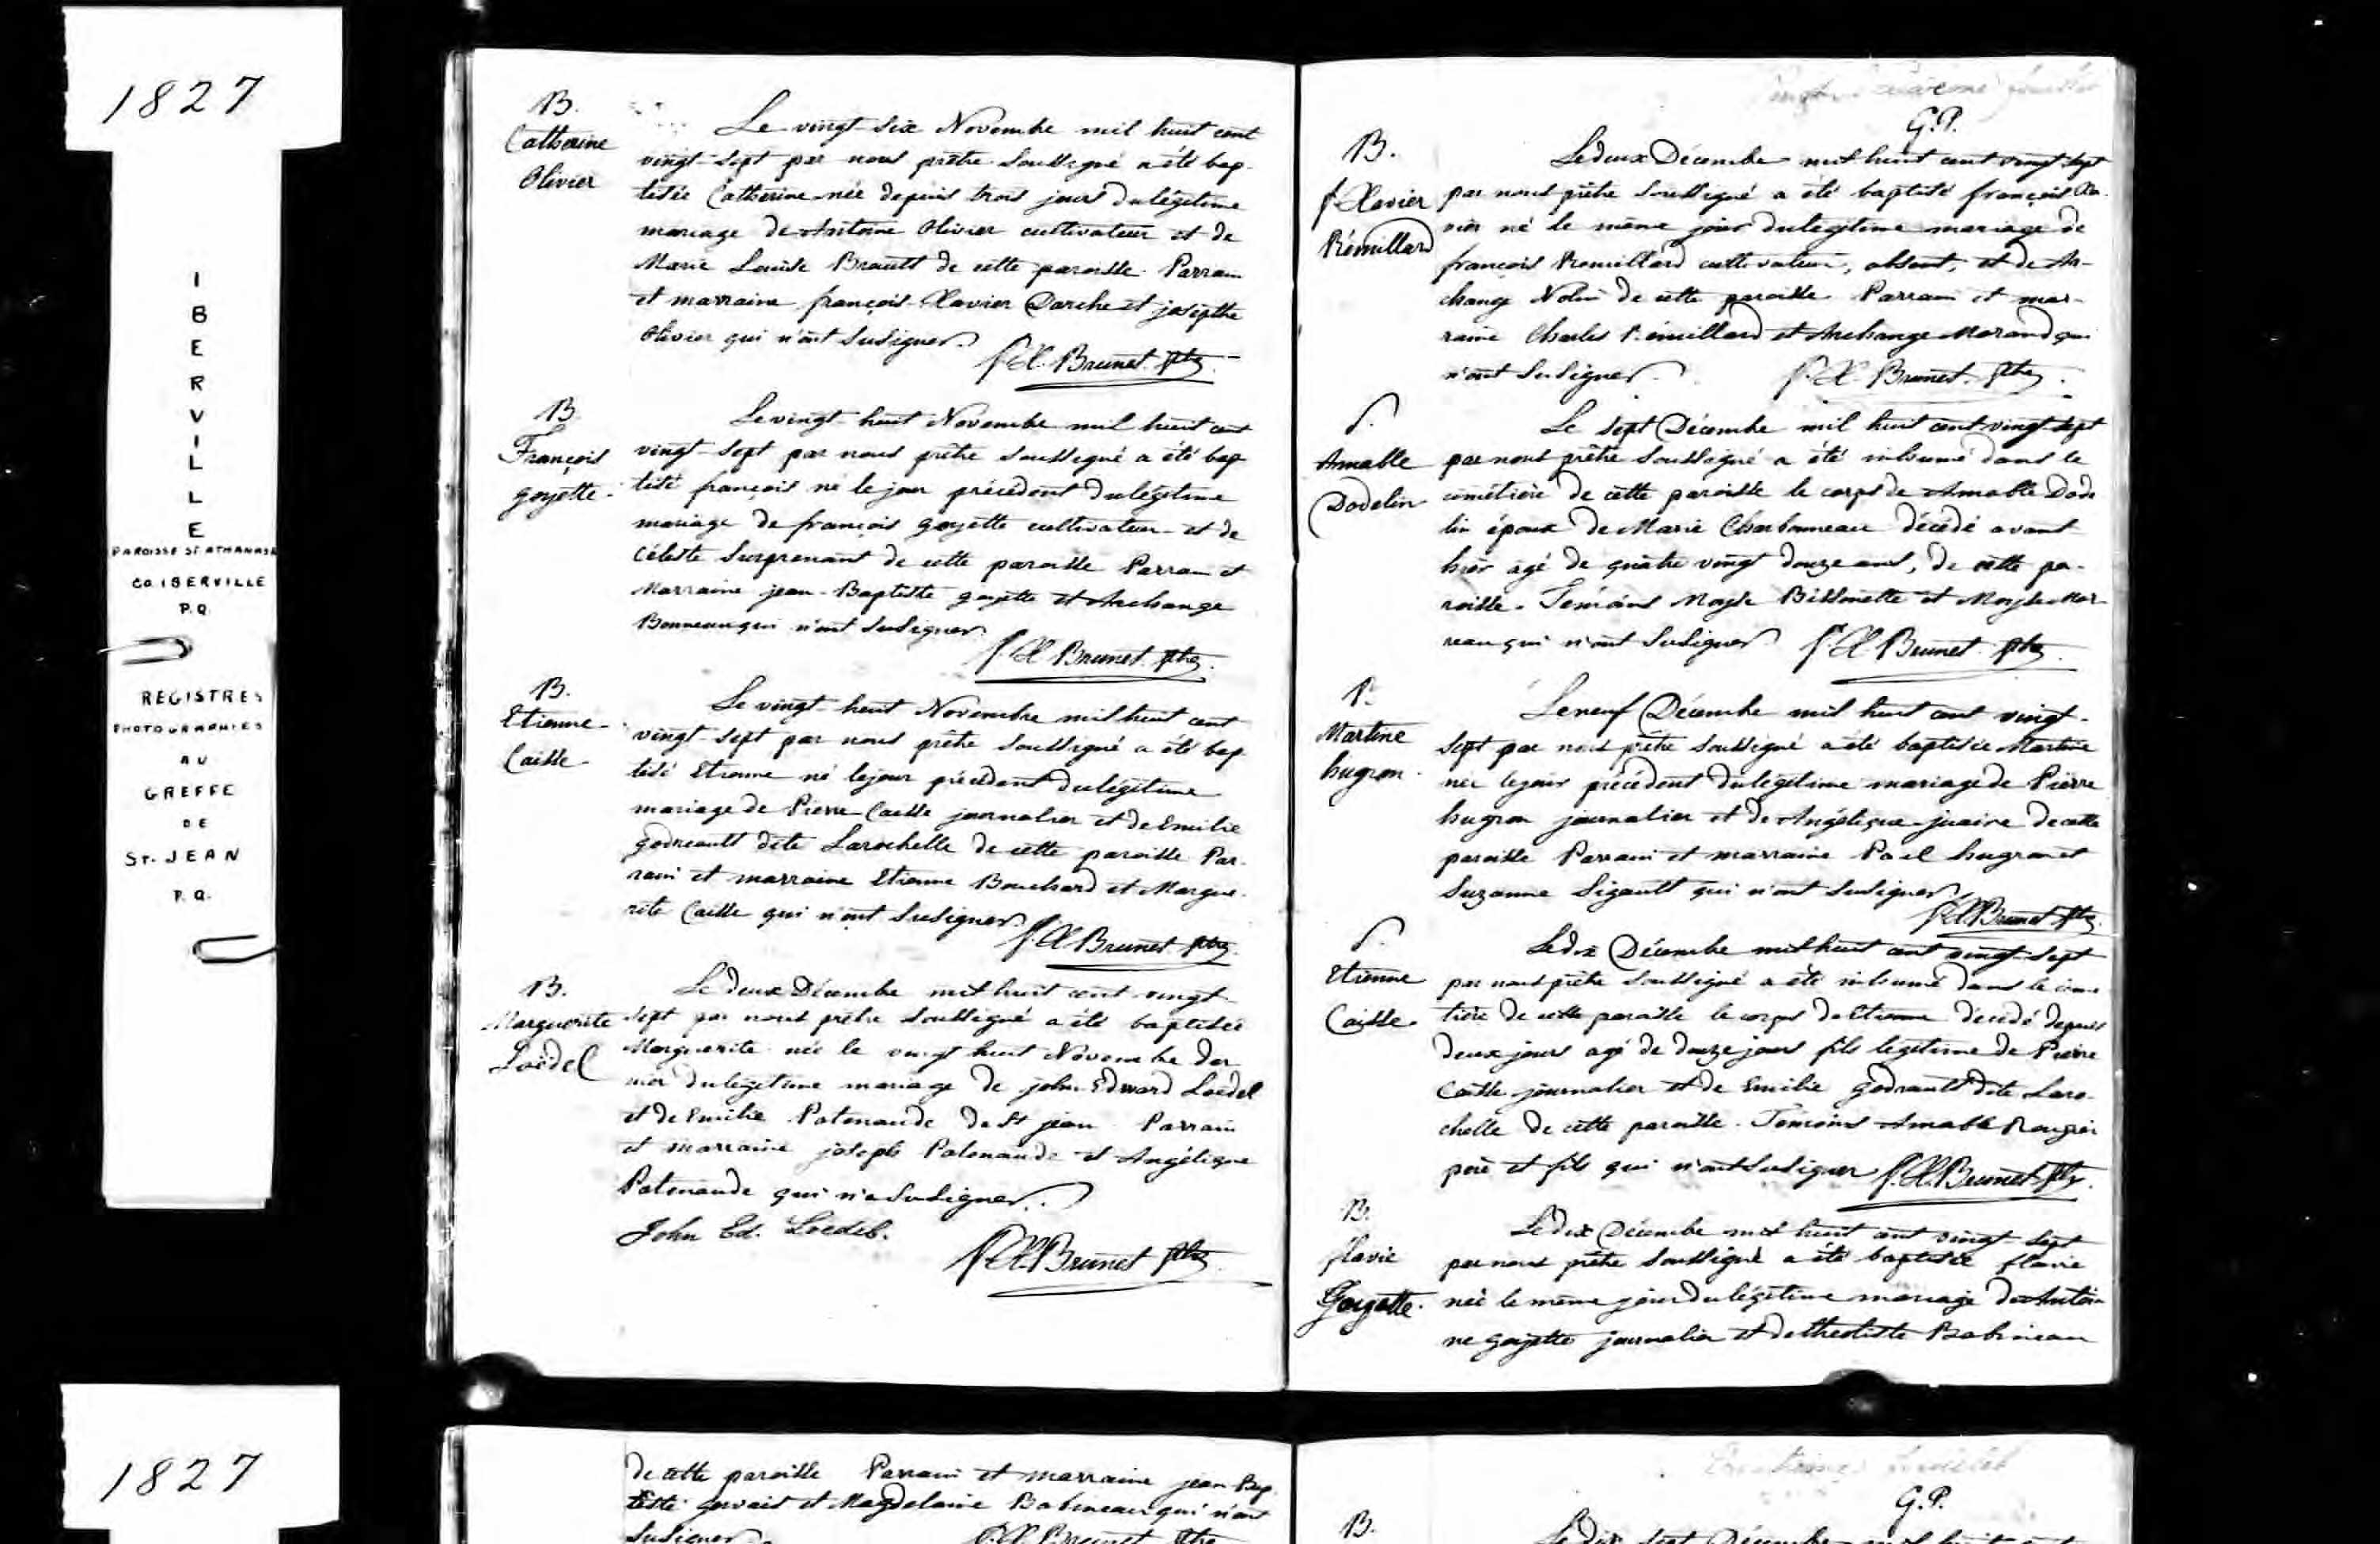 1827
IBERVILLE
PAROISSE ST ATHANASE
CO IBERVILLE
P.Q.
REGISTRES
PHOTOGRAPHIES
AU
GREFFE
DE
ST. JEAN
P.Q.
1827
B.
Catherine
Olivier
Le vingt-six Novembre mil huit cent
vingt-sept par nous prêtre soussigné a été bap-
tisée Catherine née depuis trois jours du légitime
mariage de Antoine Olivier cultivateur et de
Marie Louise Brault de cette paroisse. Parrain
et marraine françois-Xavier Darche et josephte
Olivier qui n'ont su signer.
f. X. Brunet. ptre.
B.
François
goyette.
Le vingt-huit Novembre mil huit cent
vingt-sept par nous prêtre soussigné a été bap
tisé françois né le jour précédent du légitime
mariage de françois goyette cultivateur et de
Céleste Surprenant de cette paroisse Parrain et
Marraine jean-Baptiste goyette et Archange
Bonneau qui n'ont su signer.
f. X Brunet. ptre.
B.
Etienne
Caisse.
Le vingt-huit Novembre mil huit cent
vingt-sept par nous prêtre soussigné a été bap
tisé Etienne né le jour précédent du légitime
mariage de Pierre Caisse journalier et de Emilie
godreault dite Larochelle de cette paroisse Par-
rain et marraine Etienne Bouchard et Margue-
rite Caisse qui n'ont su signer.
f. X Brunet. ptre.
B.
Marguerite
Loëdel
Le deux Décembre mil huit cent vingt-
sept par nous prêtre soussigné a été baptisée
Marguerite née le vingt huit Novembre der
nier du légitime mariage de john Edward Loëdel
et de Emilie Patenaude de St jean Parrain
et marraine joseph Patenaude et Angélique
Patenaude qui n'a su signer.
John Ed. Loedel.
f. X. Brunet ptre.
feuillet
G.P.
B.
f. Xavier
Rémillard
Le deux Décembre mil huit cent vingt sept
par nous prêtre soussigné a été baptisé françois Xa-
vier né le même jour du légitime mariage de
françois Remillard cultivateur, absent, et de Ar-
change Nolin de cette paroisse. Parrain et mar-
raine Charles Rémillard et Archange Morand qui
n'ont su signer.
f. X. Brunet. ptre.
S.
Amable
Dodelin
Le sept Décembre mil huit cent vingt-sept
par nous prêtre soussigné a été inhumé dans le
cimétière de cette paroisse le corps de Amable Dode
lin époux de Marie Charbonneau décédé avant
hier agé de quatre vingt douze ans, de cette pa-
roisse. Témoins Moyse Bissonette et Moyse Mar
reau qui n'ont su signer. f. X Brunet ptre.
Martine
hugron.
Le neuf Décembre mil huit cent vingt-
sept par nous prêtre soussigné a été baptisée Martine
née le jour précédent du légitime mariage de Pierre
hugron journalier et de Angélique juaire de cette
paroisse Parrain et marraine Poel hugron et
Suzanne Sigault qui n'ont su signer.
f. X Brunet ptre.
S.
Etienne
Caisse.
Le dix Décembre mil huit cent vingt-sept
par nous prêtre soussigné a été inhumé dans le cime
tière de cette paroisse le corps de Etienne décédé depuis
deux jours agé de douze jours fils légitime de Pierre
Caisse journalier et de Emilie godreault dite Laro-
chelle de cette paroisse. Témoins Amable Rougier
père et fils qui n'ont su signer f. X. Brunet ptre.
B.
flavie
Goyette.
Le dix Décembre mil huit cent vingt-sept
par nous prêtre soussigné a été baptisée flavie
née le même jour du légitime mariage de Antoi-
ne goyette journalier et de theotiste Babineau
de cette paroisse Parrain et marraine jean-Bap-
tiste gervais et Magdelaine Babineau qui n'ont
su signer.
f. X. Brunet ptre
feuillet
G.P.
B.
Le dix sept Décembre mil huit cent